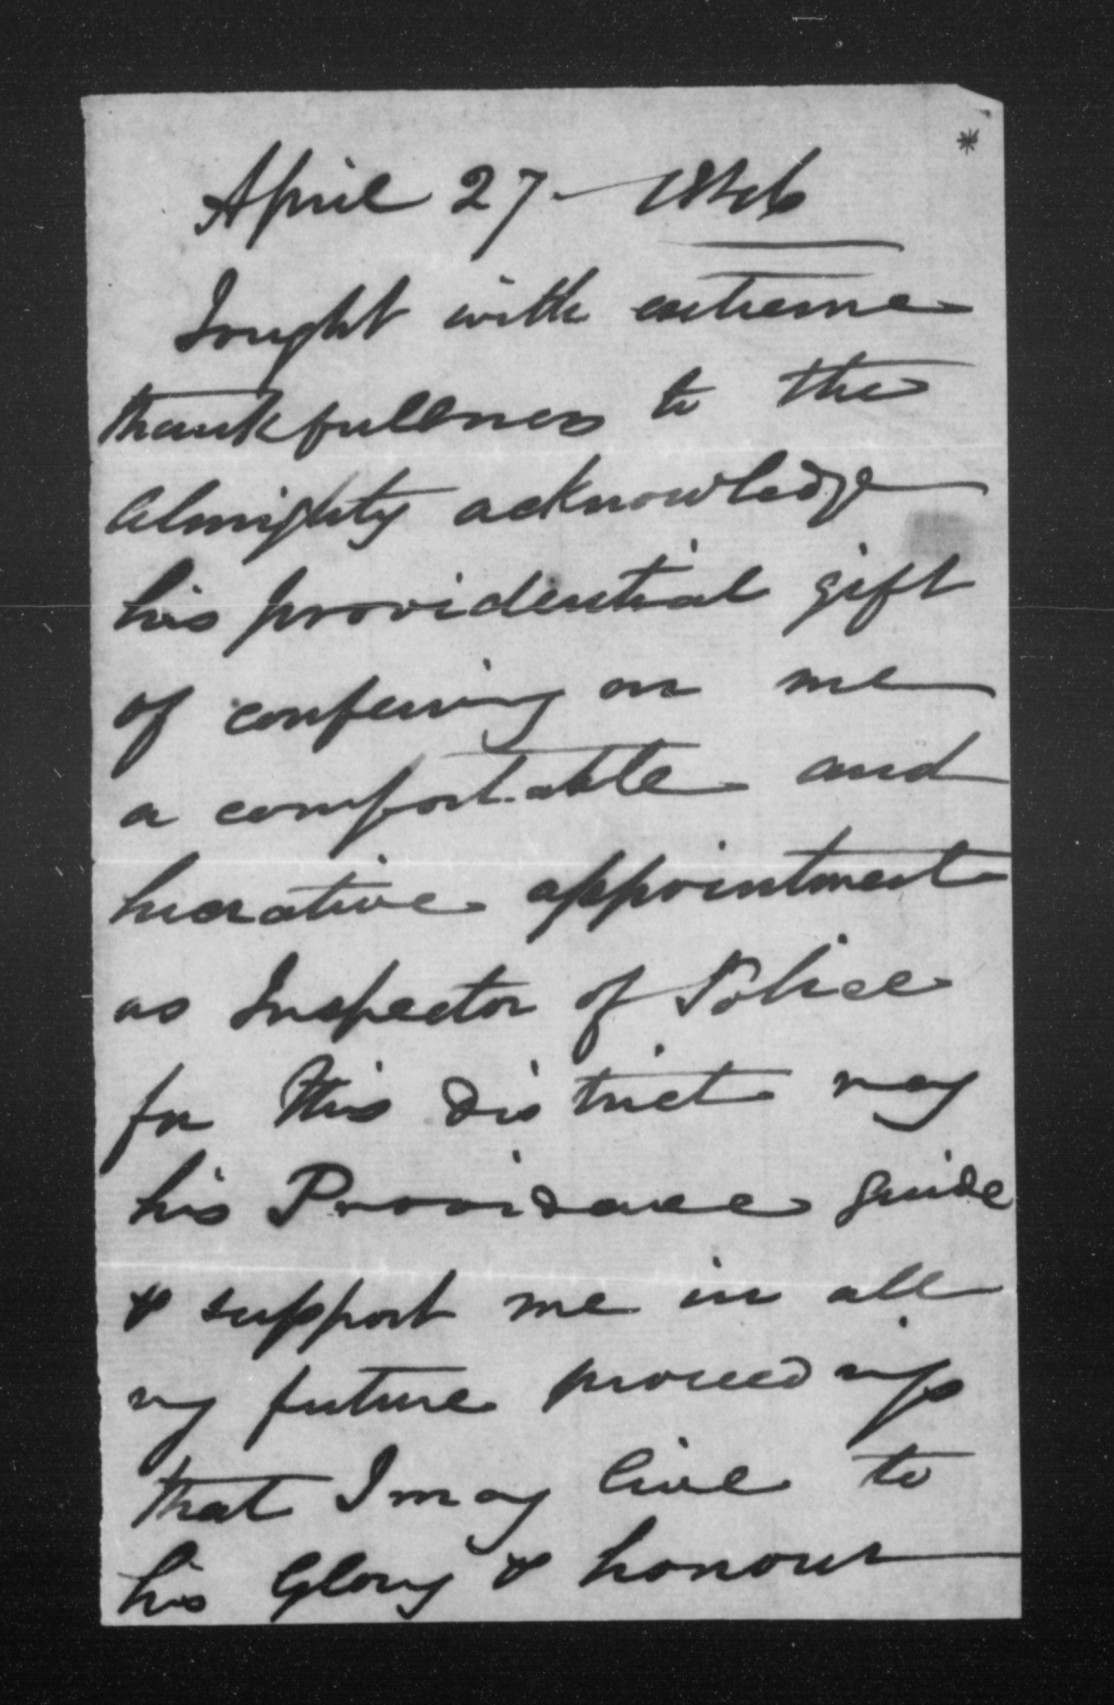 April 27 - 1846
I ought with extreme
thankfullness to the
Almighty acknowledge
his providential gift
of conferring on me
a comfortable and
lucrative appointment
as Inspector of Police
for this district may
his Providence guide
& support me in all
my future proceedings
that I may live to
his Glory & honour